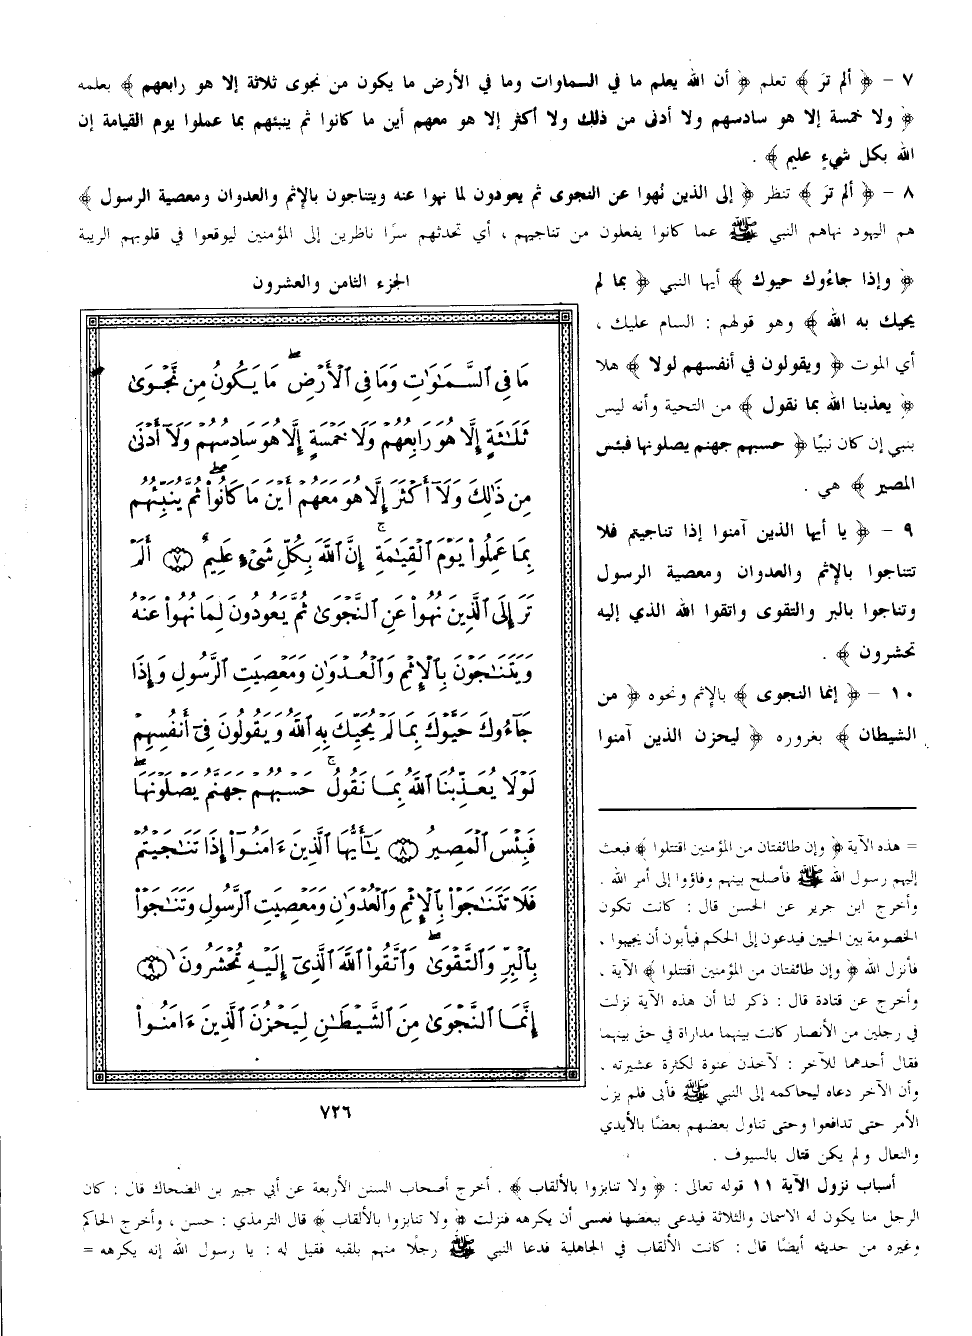 ٧ - ﴿ ألم تر ﴾ تعلم ﴿ أن الله يعلم ما في السماوات وما في الأرض ما يكون من نجوى ثلاثة إلا هو رابعهم ﴾ بعلمه
﴿ ولا خمسة إلا هو سادسهم ولا أدنى من ذلك ولا أكثر إلا هو معهم أين ما كانوا ثم ينبئهم بما عملوا يوم القيامة إن
الله بكل شيءٍ عليم ﴾ .
٨ - ﴿ ألم ترَ ﴾ تنظر ﴿ إلى الذين نُهوا عن النجوى ثم يعودون لما نهوا عنه ويتناجون بالإثم والعدوان ومعصية الرسول ﴾
هم اليهود نهاهم النبي ﷺ عما كانوا يفعلون من تناجيهم ، أي تحدثهم سرًا ناظرين إلى المؤمنين ليوقعوا في قلوبهم الريبة
﴿ وإذا جاءُوك حيوك ﴾ أيها النبي ﴿ بما لم
يحيك به الله ﴾ وهو قولهم : السام عليك ،
أي الموت ﴿ ويقولون في أنفسهم لولا ﴾ هلا
﴿ يعذبنا الله بما نقول ﴾ من التحية وأنه ليس
بنبي إن كان نبيًا ﴿ حسبهم جهنم يصلونها فبئس
المصير ﴾ هي .
٩ - ﴿ يا أيها الذين آمنوا إذا تناجيتم فلا
تتناجوا بالإثم والعدوان ومعصية الرسول
وتناجوا بالبر والتقوى واتقوا الله الذي إليه
تحشرون ﴾ .
١٠ - ﴿ إنما النجوى ﴾ بالإثم ونحوه ﴿ من
الشيطان ﴾ بغروره ﴿ ليحزن الذين آمنوا
الجزء الثامن والعشرون
مَا فِي السَّمَٰوَٰتِ وَمَا فِي الْأَرْضِ ۖ مَا يَكُونُ مِن نَّجْوَىٰ
ثَلَٰثَةٍ إِلَّا هُوَ رَابِعُهُمْ وَلَا خَمْسَةٍ إِلَّا هُوَ سَادِسُهُمْ وَلَآ أَدْنَىٰ
مِن ذَٰلِكَ وَلَآ أَكْثَرَ إِلَّا هُوَ مَعَهُمْ أَيْنَ مَا كَانُوا۟ ۖ ثُمَّ يُنَبِّئُهُم
بِمَا عَمِلُوا۟ يَوْمَ الْقِيَٰمَةِ ۚ إِنَّ اللَّهَ بِكُلِّ شَىْءٍ عَلِيمٌ ﴿٧﴾ أَلَمْ
تَرَ إِلَى الَّذِينَ نُهُوا۟ عَنِ النَّجْوَىٰ ثُمَّ يَعُودُونَ لِمَا نُهُوا۟ عَنْهُ
وَيَتَنَٰجَوْنَ بِالْإِثْمِ وَالْعُدْوَٰنِ وَمَعْصِيَتِ الرَّسُولِ وَإِذَا
جَآءُوكَ حَيَّوْكَ بِمَا لَمْ يُحَيِّكَ بِهِ اللَّهُ وَيَقُولُونَ فِىٓ أَنفُسِهِمْ
لَوْلَا يُعَذِّبُنَا اللَّهُ بِمَا نَقُولُ ۚ حَسْبُهُمْ جَهَنَّمُ يَصْلَوْنَهَا ۖ
فَبِئْسَ الْمَصِيرُ ﴿٨﴾ يَٰٓأَيُّهَا الَّذِينَ ءَامَنُوٓا۟ إِذَا تَنَٰجَيْتُمْ
فَلَا تَتَنَٰجَوْا۟ بِالْإِثْمِ وَالْعُدْوَٰنِ وَمَعْصِيَتِ الرَّسُولِ وَتَنَٰجَوْا۟
بِالْبِرِّ وَالتَّقْوَىٰ ۖ وَاتَّقُوا۟ اللَّهَ الَّذِىٓ إِلَيْهِ تُحْشَرُونَ ﴿٩﴾
إِنَّمَا النَّجْوَىٰ مِنَ الشَّيْطَٰنِ لِيَحْزُنَ الَّذِينَ ءَامَنُوا۟
٧٢٦
= هذه الآية ﴿ وإن طائفتان من المؤمنين اقتتلوا ﴾ فبعث
إليهم رسول الله ﷺ فأصلح بينهم وفاؤوا إلى أمر الله .
وأخرج ابن جرير عن الحسن قال : كانت تكون
الخصومة بين الحيين فيدعون إلى الحكم فيأبون أن يجيبوا ،
فأنزل الله ﴿ وإن طائفتان من المؤمنين اقتتلوا ﴾ الآية ،
وأخرج عن قتادة قال : ذكر لنا أن هذه الآية نزلت
في رجلين من الأنصار كانت بينهما مداراة في حق بينهما
فقال أحدهما للآخر : لآخذن عنوة لكثرة عشيرته ،
وأن الآخر دعاه ليحاكمه إلى النبي ﷺ فأبى فلم يزل
الأمر حتى تدافعوا وحتى تناول بعضهم بعضًا بالأيدي
والنعال ولم يكن قتال بالسيوف .
أسباب نزول الآية ١١ قوله تعالى : ﴿ ولا تنابزوا بالألقاب ﴾ . أخرج أصحاب السنن الأربعة عن أبي جبير بن الضحاك قال : كان
الرجل منا يكون له الاسمان والثلاثة فيدعى ببعضها فعسى أن يكرهه فنزلت ﴿ ولا تنابزوا بالألقاب ﴾ قال الترمذي : حسن ، وأخرج الحاكم
وغيره من حديثه أيضًا قال : كانت الألقاب في الجاهلية فدعا النبي ﷺ رجلًا منهم بلقبه فقيل له : يا رسول الله إنه يكرهه =